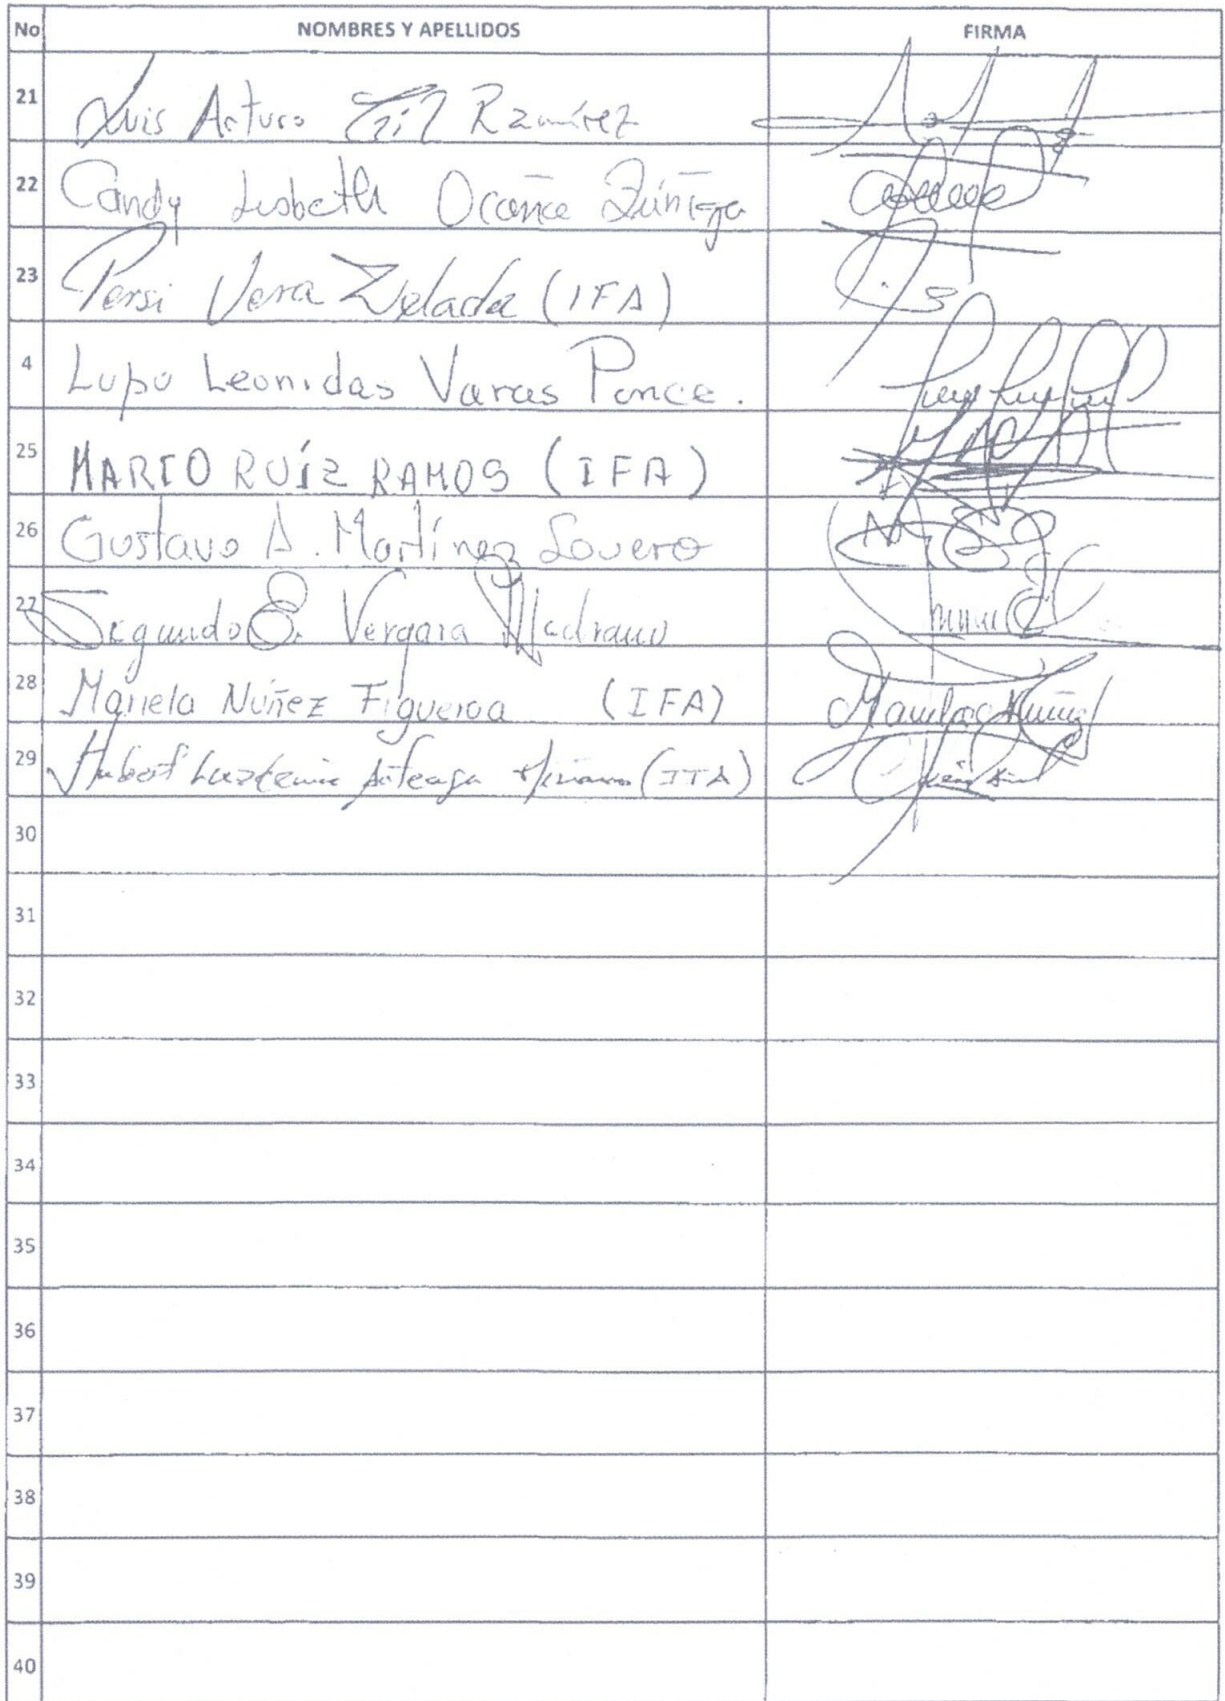 No NOMBRES Y APELLIDOS FIRMA
21 Luis Arturo Gil Ramírez
22 Candy Lisbeth Ocaña Zúñiga
23 Persi Vera Zelada (IFA)
4 Lupo Leonidas Varas Ponce.
25 MARIO RUÍZ RAMOS (IFA)
26 Gustavo A. Martínez Sovero
27 Segundo E. Vergara Medrano
28 Mariela Núñez Figueroa (IFA) Mariela Núñez
29 Arteaga
30
31
32
33
34
35
36
37
38
39
40